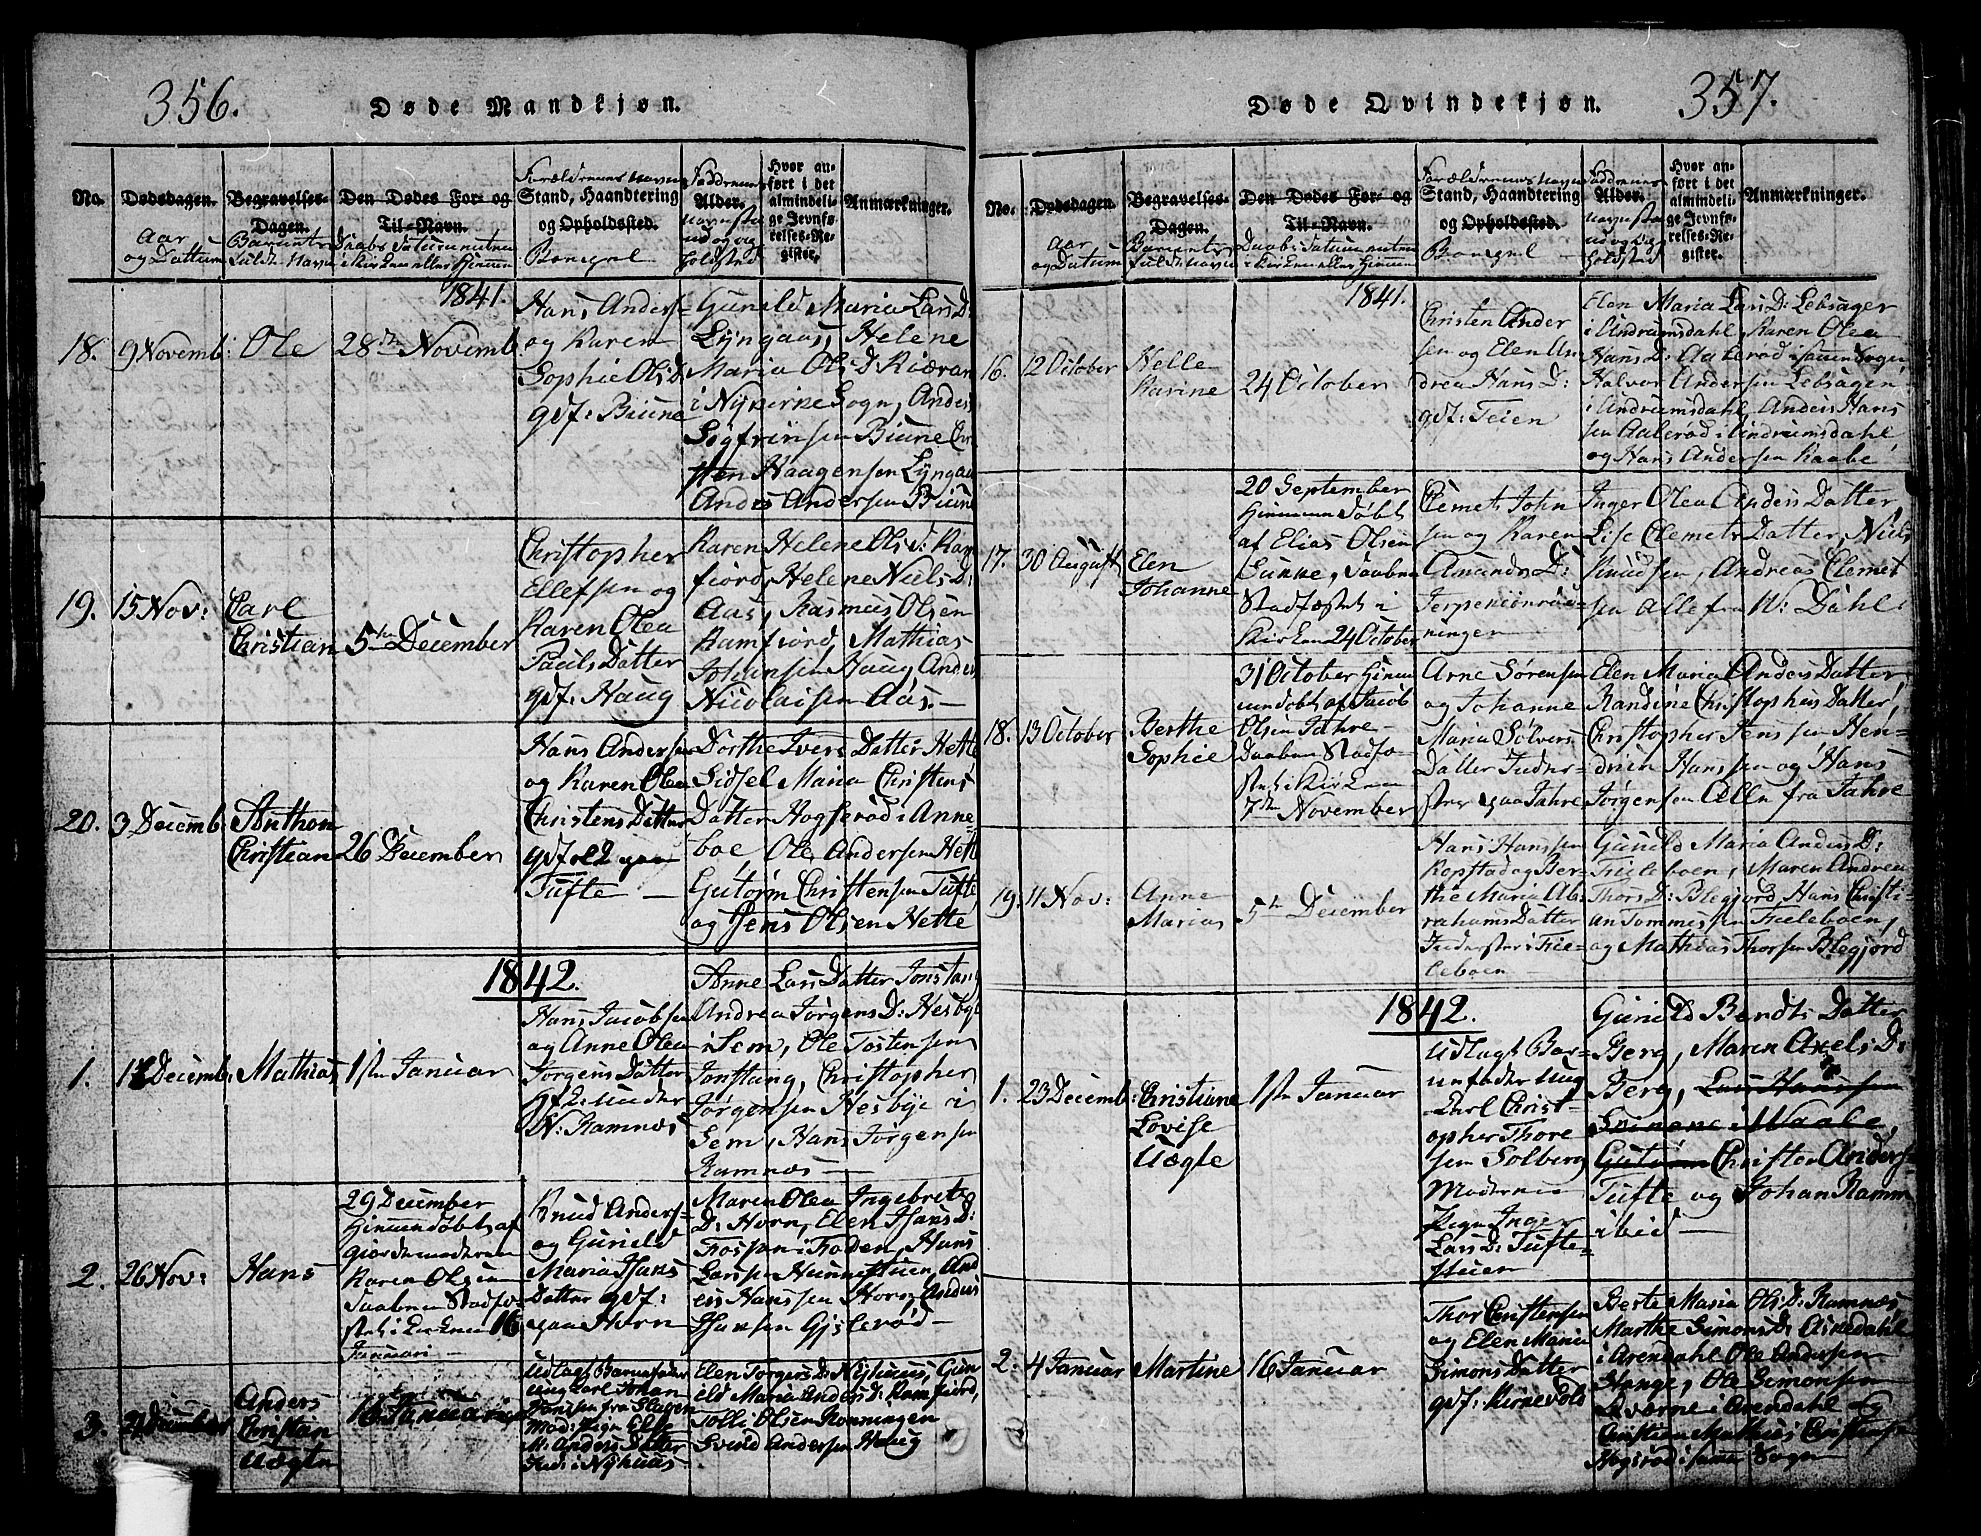 356.
Døde Mandkjøn.
No.
Dødsdagen.
Aar
og Dattum
Begravelses-
Dagen.
Den Dødes For- og
Til-Navn.
Forældrenes Navn
Stand, Haandtering
og Opholdsted.
Faddernes
Alder.
Hvor an-
ført i det
almindeli-
ge Jevnfø-
relses-Re-
gister.
Anmærkninger.
1841.
18.
9 Novemb:
Ole
28de Novemb
Hans Anders
og Karen
Sophie Ols D
gdf: Biune
Gunild Maria Lars D:
Lyngaas, Helene
Maria Ols D
i Nykirke Sogn, Anders
Biune Chri
sten Haagensen Lyngaa
Anders Andersen Biune
19.
15 Nov:
Carl
Christian
5te December
Christopher
Ellefsen og
Karen Olea
Pauls Datter
gdf: Haug
Karen Helene Ols D: Ram
fiord, Helene Niels D:
Aas, Rasmus Olsen
Ramfiord, Mathias
Johansen Haug, Anders
Nicolaisen Aas.
20.
3 Decemb
Anthon
Christian
26 December
Hans Andersen
og Karen Olea
Christens Datter
Tufte
Dorthe Ivers Datter Hette
Sidsel Maria Christens
Datter Hogserød i Anne-
boe Ole Andersen Hette
Gutorm Christensen Tufte
og Jens Olsen Hette
1842.
1.
Decemb:
Mathias
1ste Januar
Hans Jacobsen
og Anne Olea
Jørgens Datter
N: Ramnæs
Anne Lars Datter Jonstang
Andrea Jørgens D: Hesbye
i Sem, Ole Tostensen
Jonstang, Christopher
Jørgensen Hesbye i
Sem, Hans Jørgensen
Ramnæs
2.
26 Nov:
Hans
29 December
Hiemmedøbt af
Giordemoderen
Karen Olsen
Daaben Stadfæ-
stet i Kirken 16
Januari
Knud Anders-
og Gunild
Maria Hans
Datter gdf:
paa Horn
Maren Olea Ingebrets
D: Horn, Elen Hans D:
Fossan i Foden, Hans
Larssen Hunnestuen, And
ers Hanssen Horn, Anders
Hansen Gislerød
3.
Anders
Christian
Uægte
16 Januari
Udlagt Barnefader
Ung Carl Johan
Hanssen fra Slagen
Mod: Pigen Elle
M: Anders Datter
Elen Jørgers D: Nyhuus, Gun
ild Maria Anders D: Ramfiord,
Tolli Olsen Rønningen
Svend Andersen Haug
357.
Døde Qvindekjøn.
No.
Dødsdagen.
Aar
og Datum
Begravelses-
Dagen.
Den Dødes For- og
Til-Navn.
Forældrenes Navn
Stand, Haandtering
og Opholdsted.
Faddernes
Alder.
Hvor an-
ført i det
almindeli-
ge Jevnfø-
relses-Re-
gister.
Anmærkninger.
1841.
16.
12 October
Helle
Karine
24 October
Christen Ander
sen og Elen An
drea Hans D:
gdf: Teien
Elen Maria Lars D: Lebsager
i Andrumsdahl, Karen Olea
Hans D: Aalerød i samme Sogn
Halvor Andersen Lebsagen
i Andrumsdahl, Anders Hans
sen Aalerød i Andrumsdahl
og Hans Andersen Raabe
17.
30 August
Elen
Johanne
20 September
Hiemmedøbt
af Elias Olsen
Sukke, Daaben
Stadfæstet i
Kirken 24 October
Clemet John
sen og Karen
Amunds D:
ninger
Inger Olea Anders Datter
Lise Clemets Datter, Niels
Knudsen, Andreas Clemet
sen Alle fra W: Dahl
18.
13 October
Berthe
Sophie
31 October Hiem
medøbt af Jacob
Olsen Jahre
Daaben Stadfæ-
stet i Kirken
7de November
Arne Sørensen
og Johanne
Maria Sølvers
Datter Inder-
ster paa Jahre
Elen Maria Anders Datter
Randine Christophers Datter,
Christopher Jenssen Hen-
drich Hanssen og Hans
Jørgensen Alle fra Jahre
19.
11 Nov:
Anne
Maria
5te December
Hans Hanssen
Kopstad og Ber-
the Maria Ab-
rahams Datter
Inderster i Fie-
leboen
Gunild Maria Anders D:
Fieleboen, Maren Andrea
Thors D: Blegjord Hans Christi-
an Tommessen Fieleboen,
og Mathias Thorsen Blegjord
1842.
1.
23 Decemb:
Christiane
Lovise
Uægte
1ste Januar
Udlagt Bar-
nefader Ung
Carl Christ-
opher Thore
sen Solberg
Moderen
Pigen Inger
Lars D: Tufte-
stuen
Gunild Berdts Datter
Berg, Maren Axels D:
Berg, Lars Hanssen
Christen Anders-
Tufte og Johan Ramm
ibid
2.
4 Januar
Martine
16 Januar
Thor Christensen
og Elen Maria
Simons Datter
gdf: Kirnevold
Berte Maria Ols D: Ramnæs,
Marthe Simons D: Askedahl
i Arendahl Ole Andersen
Hauge, Ole Simonsen
Qværne i Arendahl og
Christian Mathias Christens
Hogsrød i samme Sogn